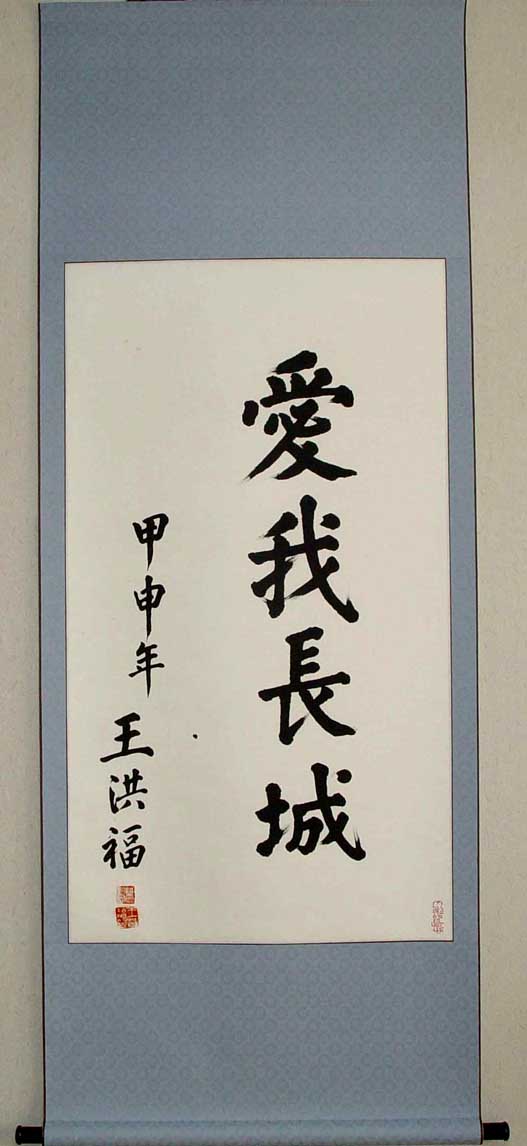 愛我長城
甲申年
王洪福